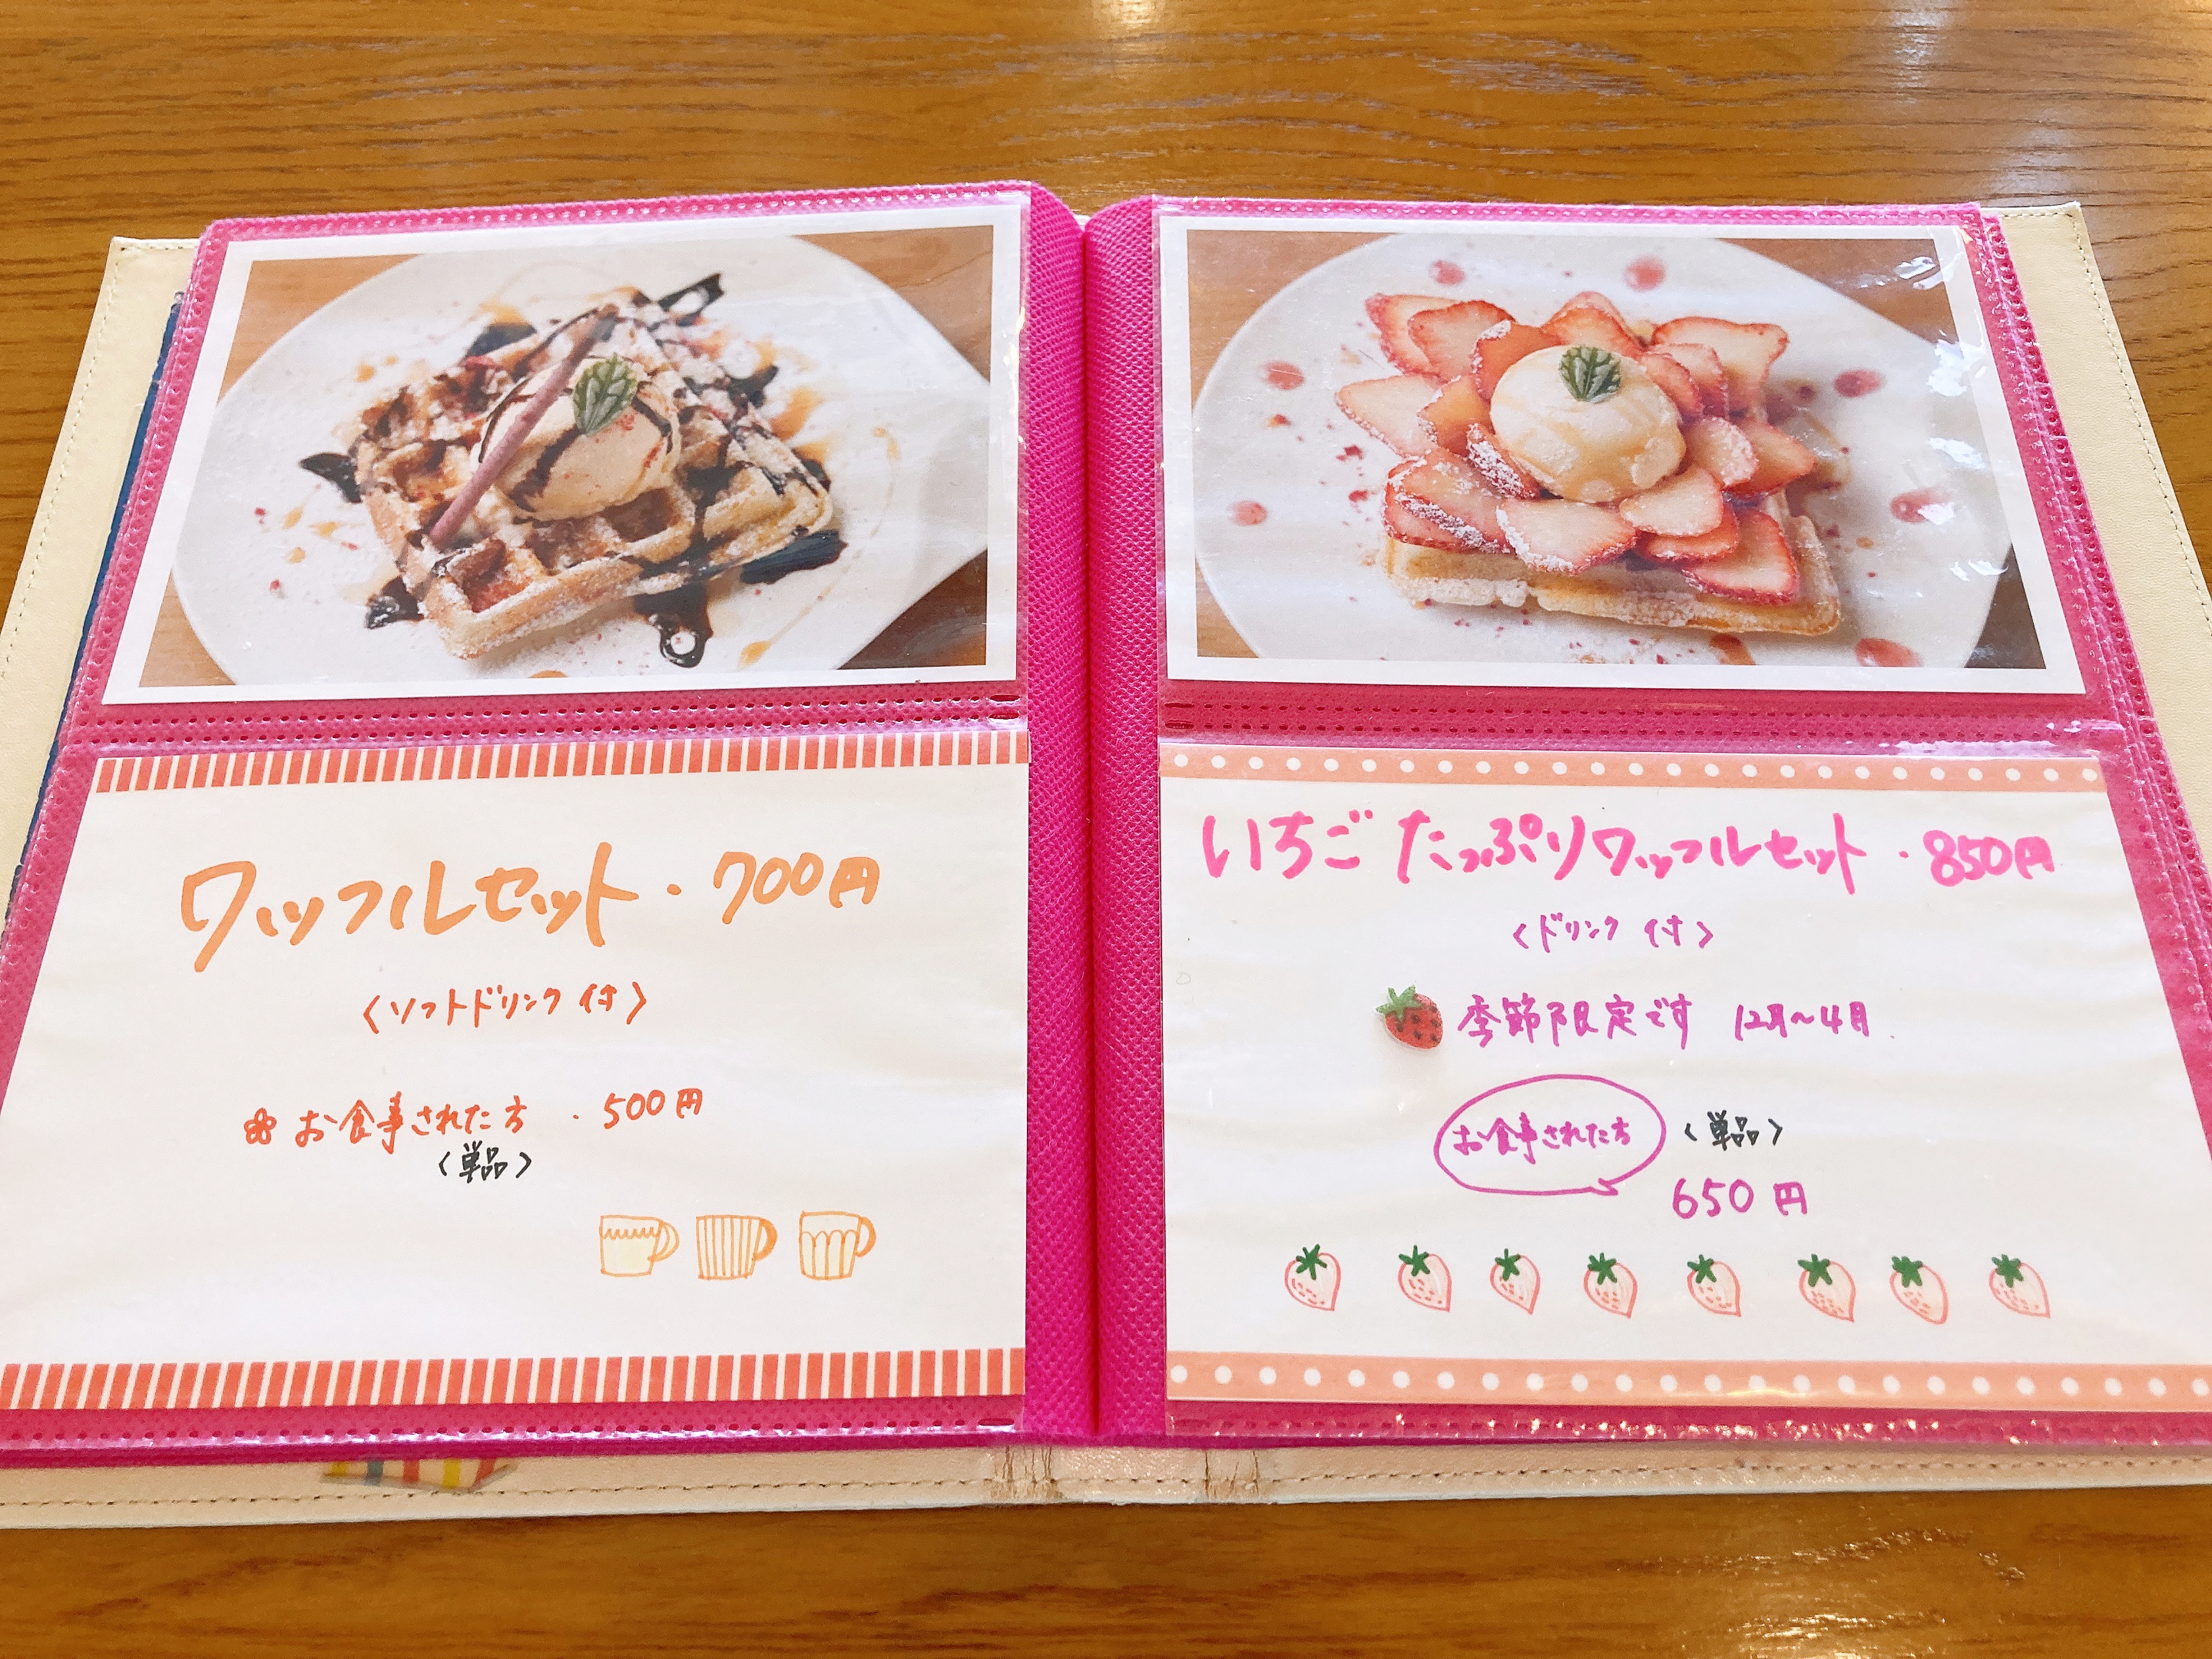 ワッフルセット・700円
〈ソフトドリンク付〉
お食事された方 ・500円
〈単品〉
いちごたっぷりワッフルセット・850円
〈ドリンク付〉
季節限定です 12月~4月
お食事された方 〈単品〉
650円